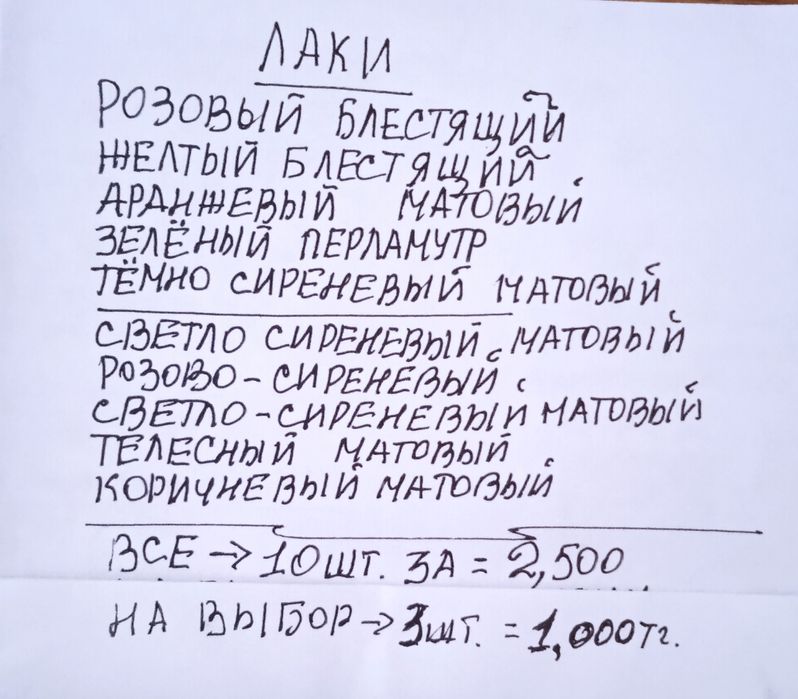 ЛАКИ
РОЗОВЫЙ БЛЕСТЯЩИЙ
ЖЕЛТЫЙ БЛЕСТЯЩИЙ
АРАНЖЕВЫЙ МАТОВЫЙ
ЗЕЛЁНЫЙ ПЕРЛАМУТР
ТЁМНО СИРЕНЕВЫЙ МАТОВЫЙ
СВЕТЛО СИРЕНЕВЫЙ МАТОВЫЙ
РОЗОВО-СИРЕНЕВЫЙ
СВЕТЛО-СИРЕНЕВЫЙ МАТОВЫЙ
ТЕЛЕСНЫЙ МАТОВЫЙ
КОРИЧНЕВЫЙ МАТОВЫЙ
ВСЕ → 10 ШТ. ЗА = 2,500
НА ВЫБОР → 3 ШТ. = 1,000 ТГ.